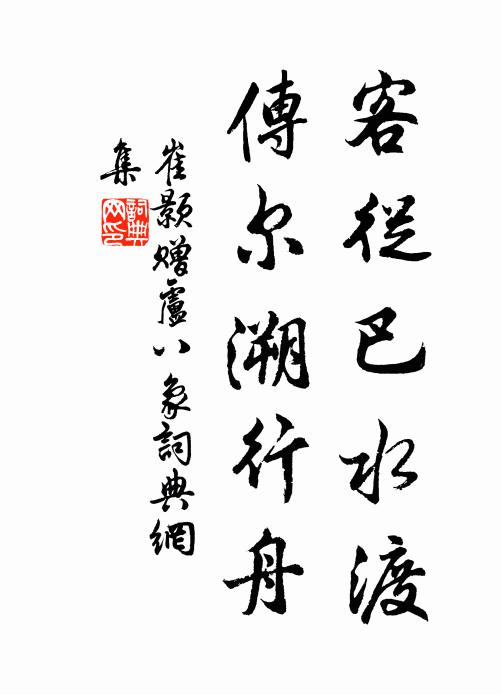 客從巴水渡
傳尔溯行舟
崔顥贈盧八象詞典網
集
詞典
网印